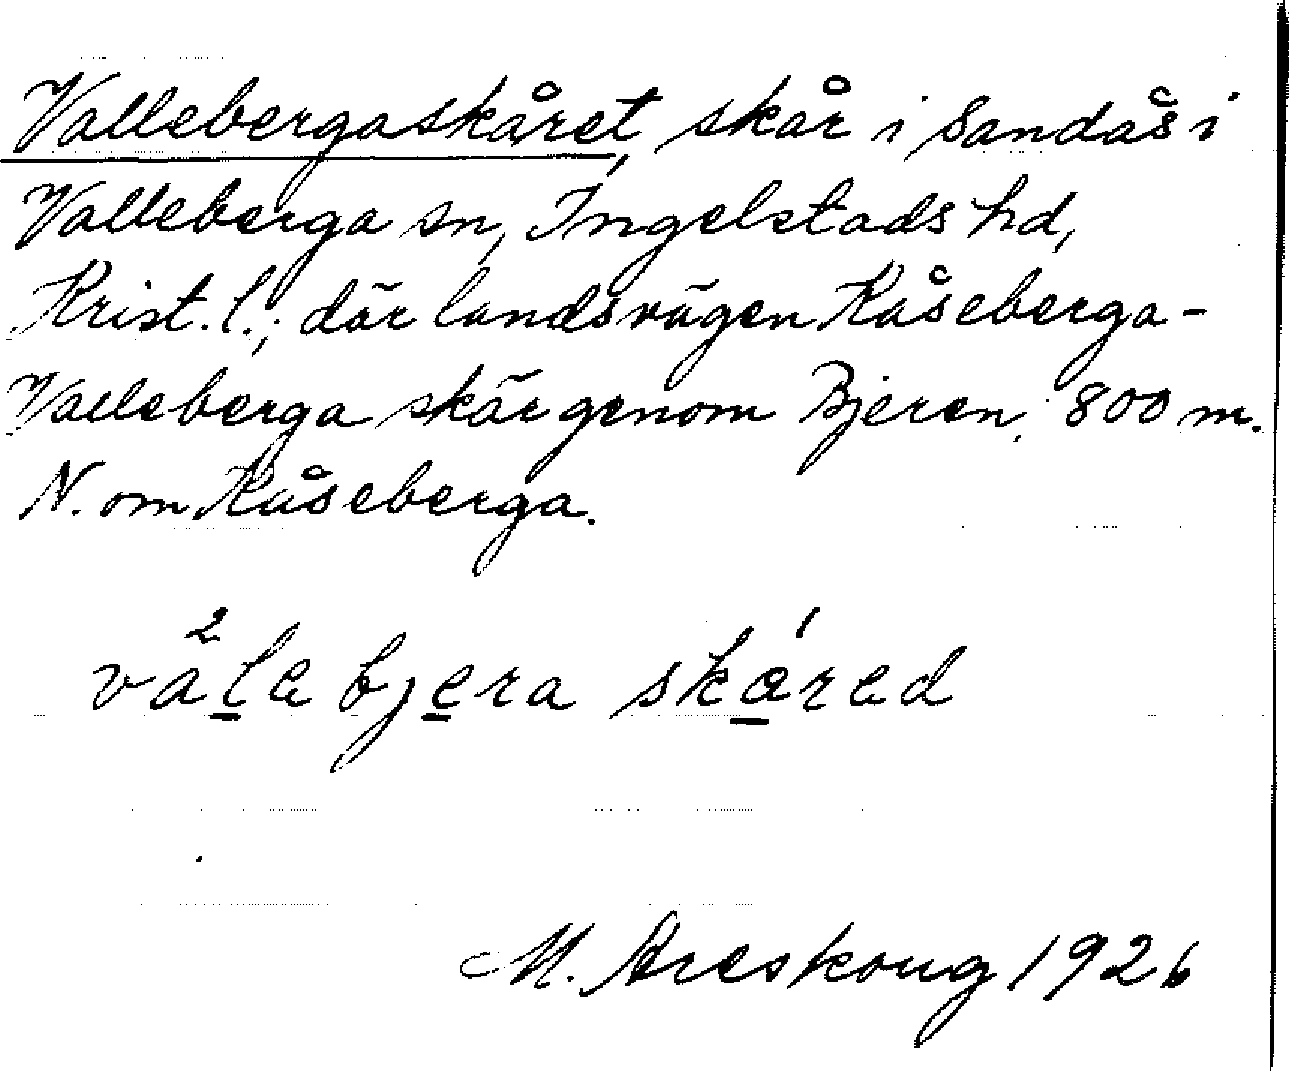 Vallebergaskåret, skår i Sandås i
Valleberga sn, Ingelstads hd,
Krist. l.; där landsvägen Kåseberga-
Valleberga skär genom Bjeren, 800 m.
N. om Kåseberga.
valebjera skåred
M. Areskoug 1926